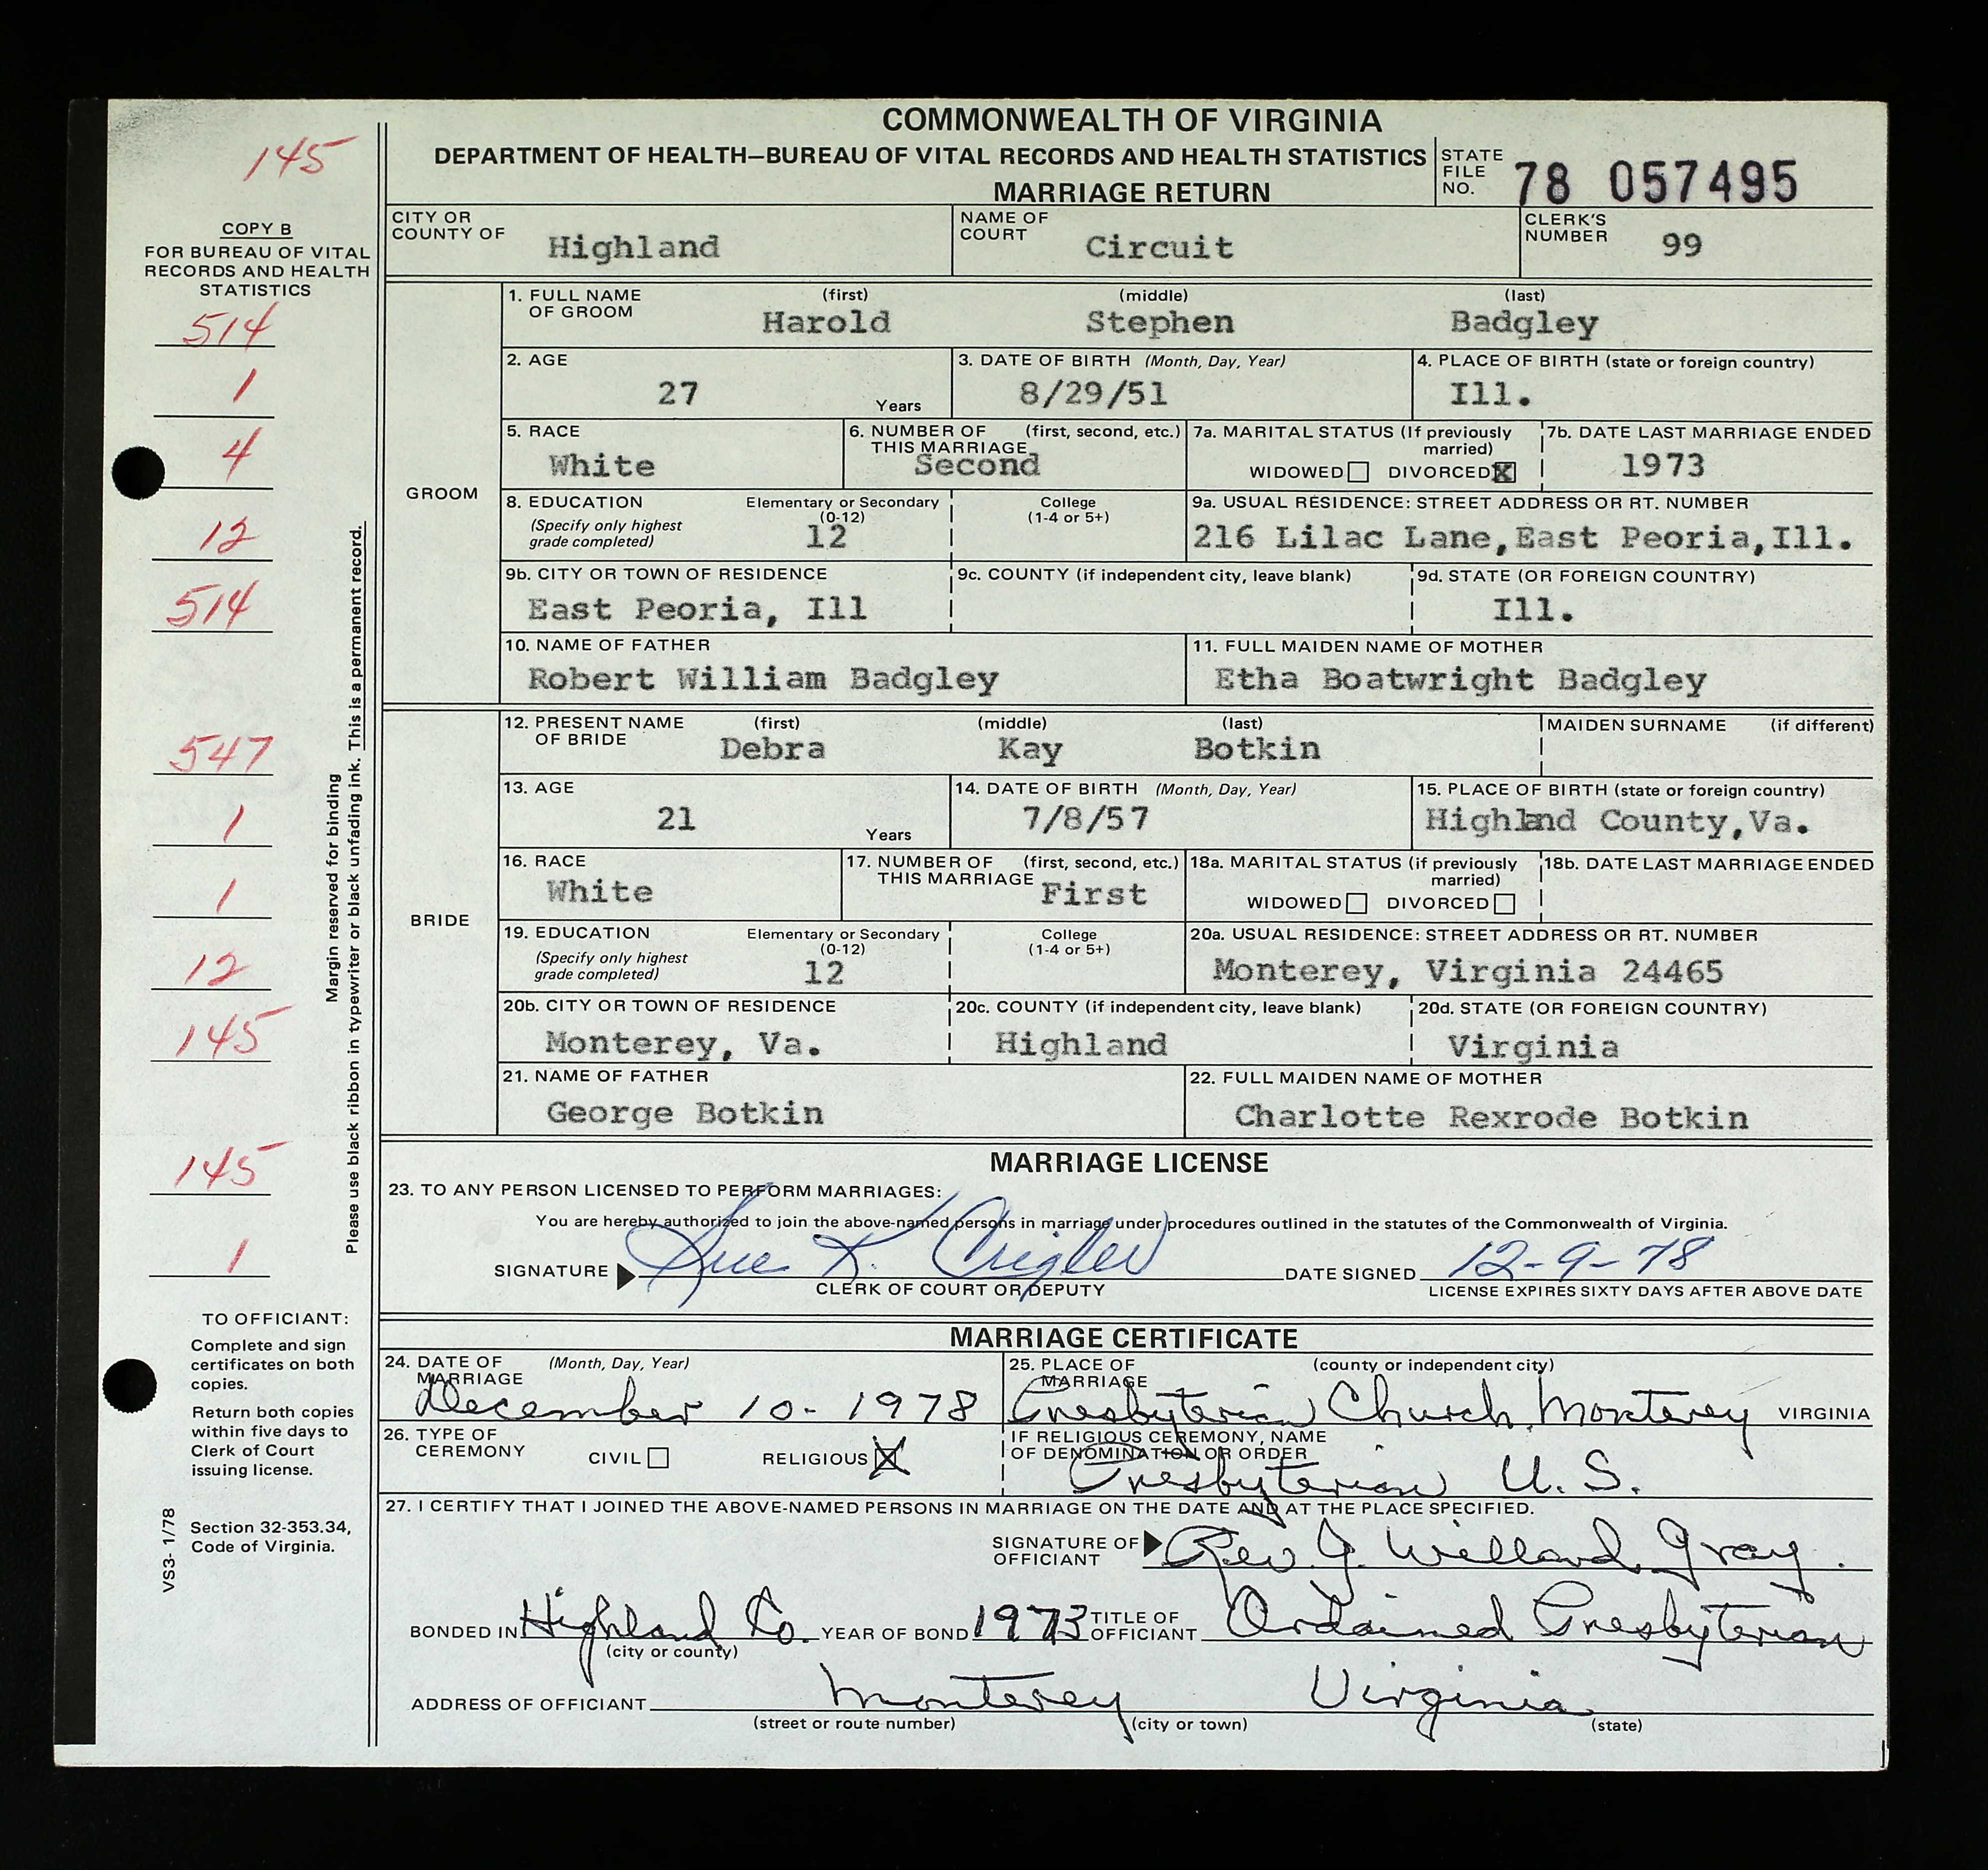 COMMONWEALTH OF VIRGINIA
DEPARTMENT OF HEALTH—BUREAU OF VITAL RECORDS AND HEALTH STATISTICS
MARRIAGE RETURN
STATE FILE NO. 78 057495
145
COPY B
FOR BUREAU OF VITAL
RECORDS AND HEALTH
STATISTICS
514
1
4
12
514
547
1
1
12
145
145
1
Margin reserved for binding
Please use black ribbon in typewriter or black unfading ink. This is a permanent record.
TO OFFICIANT:
Complete and sign
certificates on both
copies.
Return both copies
within five days to
Clerk of Court
issuing license.
Section 32-353.34,
Code of Virginia.
VS3- 1/78
CITY OR COUNTY OF Highland
NAME OF COURT Circuit
CLERK'S NUMBER 99
GROOM
1. FULL NAME OF GROOM (first) Harold (middle) Stephen (last) Badgley
2. AGE 27 Years
3. DATE OF BIRTH (Month, Day, Year) 8/29/51
4. PLACE OF BIRTH (state or foreign country) Ill.
5. RACE White
6. NUMBER OF THIS MARRIAGE (first, second, etc.) Second
7a. MARITAL STATUS (If previously married) WIDOWED DIVORCED X
7b. DATE LAST MARRIAGE ENDED 1973
8. EDUCATION (Specify only highest grade completed) Elementary or Secondary (0-12) 12 College (1-4 or 5+)
9a. USUAL RESIDENCE: STREET ADDRESS OR RT. NUMBER 216 Lilac Lane,East Peoria,Ill.
9b. CITY OR TOWN OF RESIDENCE East Peoria, Ill
9c. COUNTY (if independent city, leave blank)
9d. STATE (OR FOREIGN COUNTRY) Ill.
10. NAME OF FATHER Robert William Badgley
11. FULL MAIDEN NAME OF MOTHER Etha Boatwright Badgley
BRIDE
12. PRESENT NAME OF BRIDE (first) Debra (middle) Kay (last) Botkin MAIDEN SURNAME (if different)
13. AGE 21 Years
14. DATE OF BIRTH (Month, Day, Year) 7/8/57
15. PLACE OF BIRTH (state or foreign country) Highland County,Va.
16. RACE White
17. NUMBER OF THIS MARRIAGE (first, second, etc.) First
18a. MARITAL STATUS (if previously married) WIDOWED DIVORCED
18b. DATE LAST MARRIAGE ENDED
19. EDUCATION (Specify only highest grade completed) Elementary or Secondary (0-12) 12 College (1-4 or 5+)
20a. USUAL RESIDENCE: STREET ADDRESS OR RT. NUMBER Monterey, Virginia 24465
20b. CITY OR TOWN OF RESIDENCE Monterey, Va.
20c. COUNTY (if independent city, leave blank) Highland
20d. STATE (OR FOREIGN COUNTRY) Virginia
21. NAME OF FATHER George Botkin
22. FULL MAIDEN NAME OF MOTHER Charlotte Rexrode Botkin
MARRIAGE LICENSE
23. TO ANY PERSON LICENSED TO PERFORM MARRIAGES:
You are hereby authorized to join the above-named persons in marriage under procedures outlined in the statutes of the Commonwealth of Virginia.
SIGNATURE Sue K. Crigler DATE SIGNED 12-9-78
CLERK OF COURT OR DEPUTY LICENSE EXPIRES SIXTY DAYS AFTER ABOVE DATE
MARRIAGE CERTIFICATE
24. DATE OF MARRIAGE (Month, Day, Year) December 10-1978
25. PLACE OF MARRIAGE (county or independent city) Presbyterian Church, Monterey VIRGINIA
26. TYPE OF CEREMONY CIVIL RELIGIOUS X
IF RELIGIOUS CEREMONY, NAME OF DENOMINATION OR ORDER Presbyterian U. S.
27. I CERTIFY THAT I JOINED THE ABOVE-NAMED PERSONS IN MARRIAGE ON THE DATE AND AT THE PLACE SPECIFIED.
SIGNATURE OF OFFICIANT Rev. J. Willard Gray.
BONDED IN Highland Co. (city or county) YEAR OF BOND 1973 TITLE OF OFFICIANT Ordained Presbyterian
ADDRESS OF OFFICIANT Monterey Virginia
(street or route number) (city or town) (state)